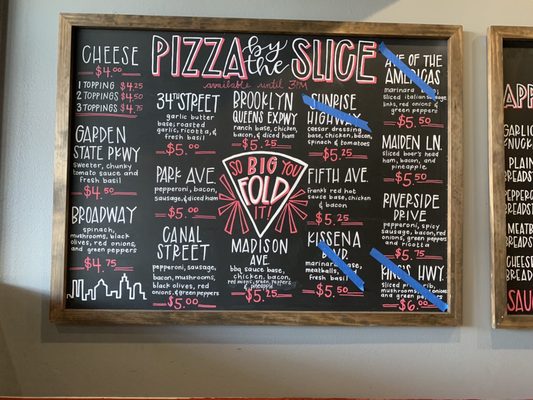 PIZZA by the SLICE
available until 3PM
CHEESE
$4.00
1 TOPPING $4.25
2 TOPPINGS $4.50
3 TOPPINGS $4.75
GARDEN
STATE PKWY
sweeter, chunky
tomato sauce and
fresh basil
$4.50
BROADWAY
spinach,
mushrooms, black
olives, red onions
and green peppers
$4.75
34TH STREET
garlic butter
base, roasted
garlic, ricotta, &
fresh basil
$5.00
PARK AVE.
pepperoni, bacon,
sausage, & diced ham
$5.00
CANAL
STREET
pepperoni, sausage,
bacon, mushrooms,
black olives, red
onions, & green peppers
$5.00
BROOKLYN
QUEENS EXPWY
ranch base, chicken,
bacon, & diced ham
$5.25
SO BIG YOU
FOLD
IT!
MADISON
AVE.
bbq sauce base,
chicken, bacon,
red onions, green peppers
& pineapple
$5.25
SUNRISE
HIGHWAY
caesar dressing
base, chicken, bacon,
spinach, & tomatoes
$5.25
FIFTH AVE.
Frank's red hot
sauce base, chicken
& bacon
$5.25
KISSENA
marinara
meatballs,
fresh basil
$5.50
AVE OF THE
AMERICAS
marinara
sliced italian
links, red onions, and
green peppers
$5.50
MAIDEN LN.
sliced boar's head
ham, bacon, and
pineapple
$5.50
RIVERSIDE
DRIVE
pepperoni, spicy
sausage, bacon, red
onions, green peppers,
and ricotta
$5.75
KINGS HWY.
sliced
mushrooms, onions
and green peppers
$6.00
GARLIC
PLAIN
PEPPER
BREADS
MEATB
BREADS
CHEES
BREAD
SAUC